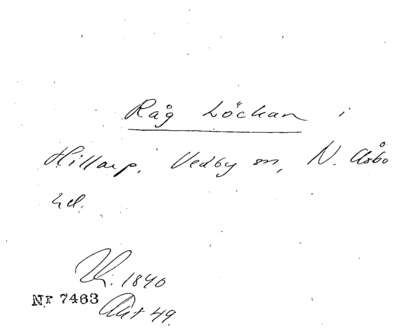 Råg Löckan i
Hillarp, Vedby sn, N. Åsbo
hd.
1840
Nr 7463
Akt 49.